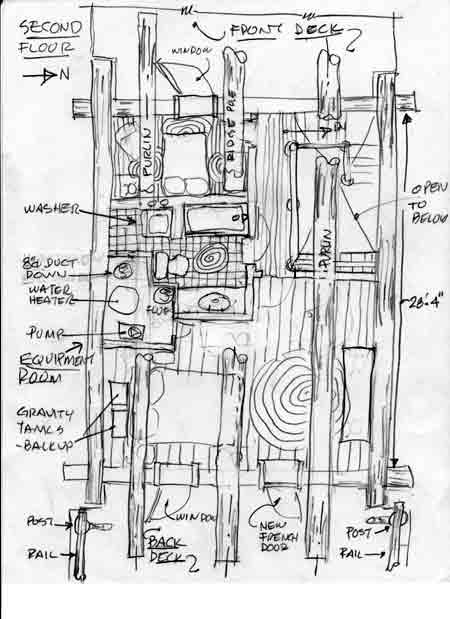 SECOND
FLOOR
N
FRONT DECK
WINDOW
PURLIN
RIDGE POLE
PURLIN
OPEN
TO
BELOW
WASHER
DUCT
DOWN
WATER
HEATER
FLUE
PUMP
EQUIPMENT
ROOM
GRAVITY
TANKS
-BACKUP
28'-4"
POST
RAIL
WINDOW
BACK
DECK
NEW
FRENCH
DOOR
POST
RAIL